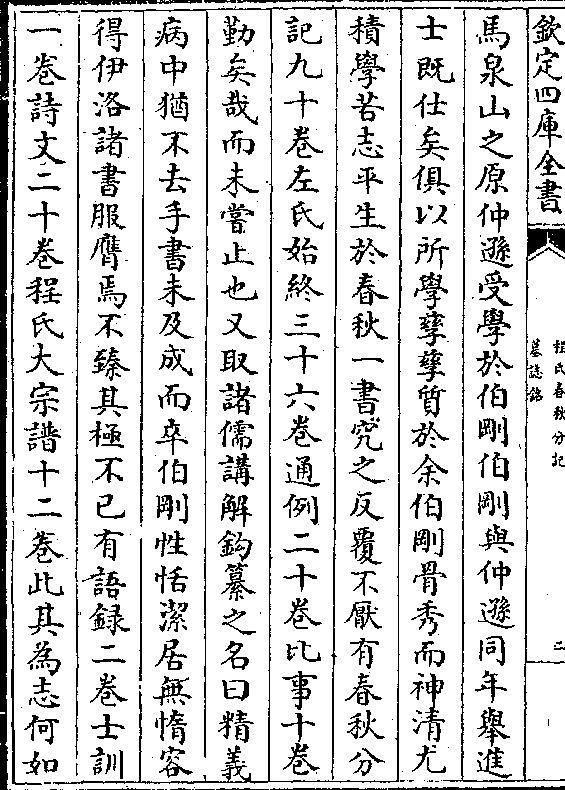 欽定四庫全書
程氏春秋分記
墓誌銘
二
馬泉山之原仲遜受學於伯剛伯剛與仲遜同年舉進
士既仕矣俱以所學孳孳質於余伯剛骨秀而神清尤
積學苦志平生於春秋一書究之反覆不厭有春秋分
記九十卷左氏始終三十六卷通例二十卷比事十卷
勤矣哉而未嘗止也又取諸儒講解鈎纂之名曰精義
病中猶不去手書未及成而卒伯剛性恬潔居無惰容
得伊洛諸書服膺焉不臻其極不已有語録二卷士訓
一巻詩文二十卷程氏大宗譜十二巻此其為志何如